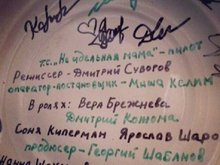 т.с. "Не идеальная мама" - пилот
Режиссер - Дмитрий Суворов
оператор-постановщик - Миша Келим
В ролях: Вера Брежнева
Дмитрий Котома.
Соня Киперман Ярослав Шаро
продюсер - Георгий Шабанов